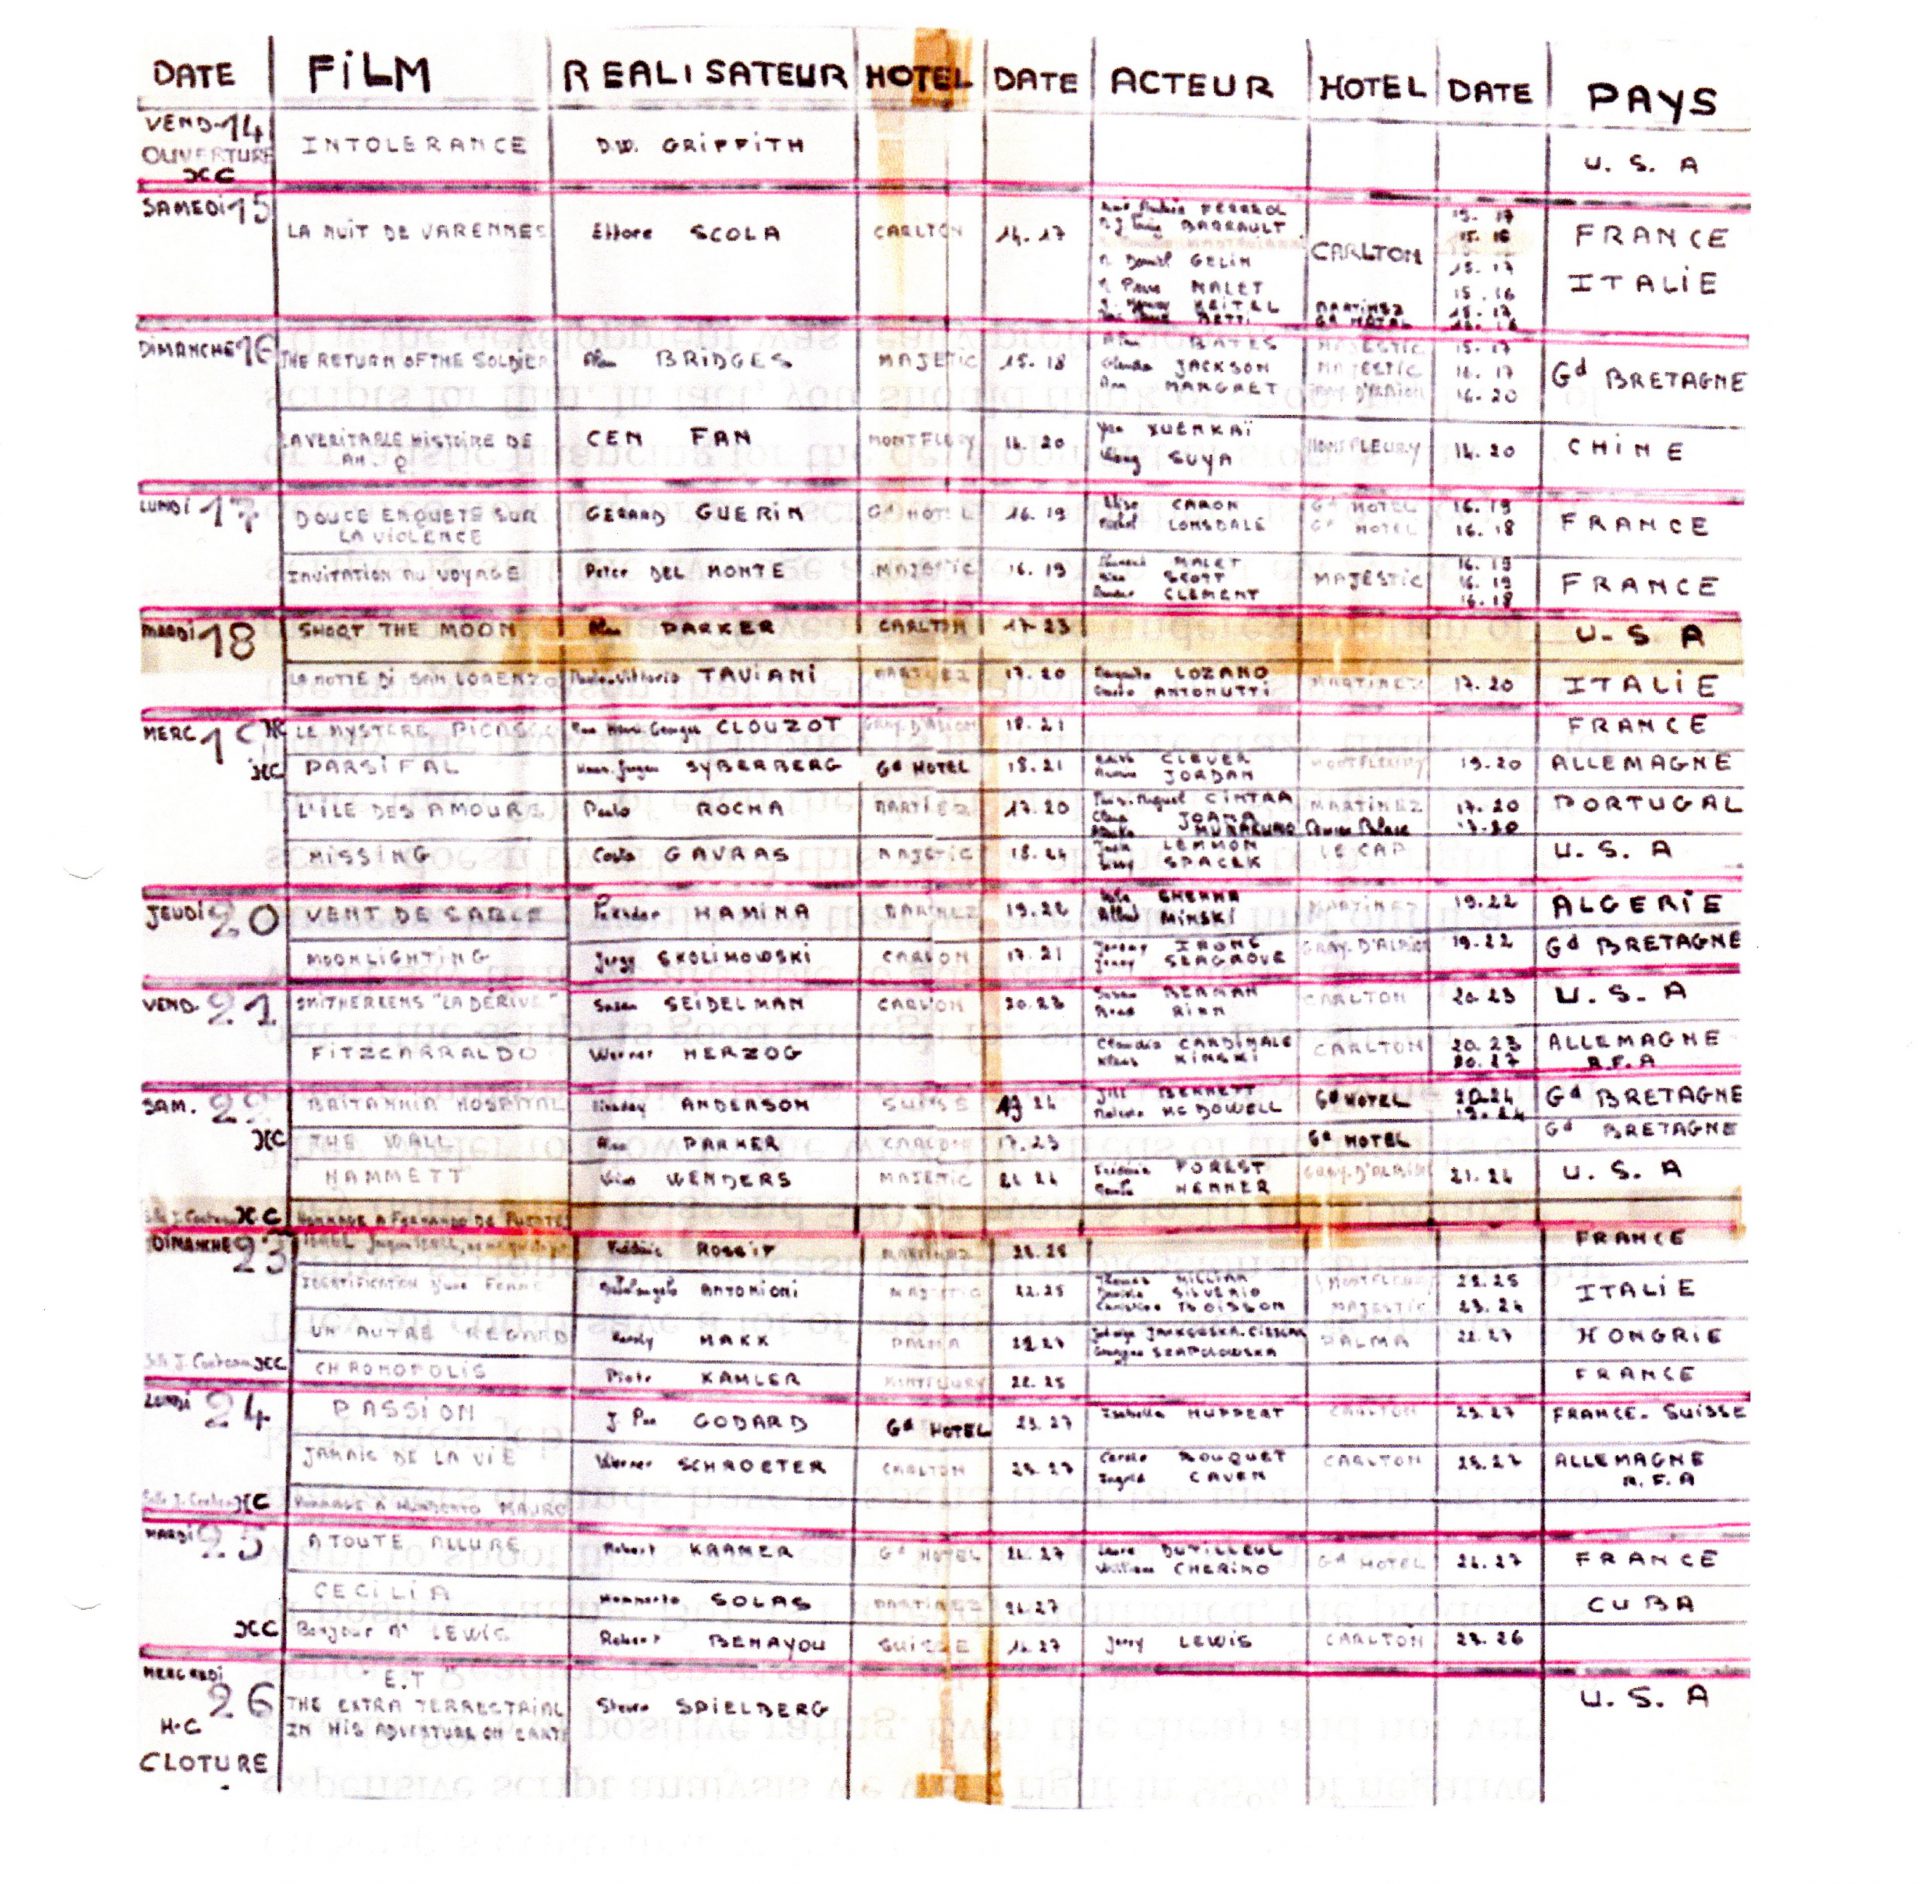 DATE FILM REALISATEUR HOTEL DATE ACTEUR HOTEL DATE PAYS
VEND 14
OUVERTURE
HC
INTOLERANCE D.W. GRIFFITH U.S.A
SAMEDI 15 LA NUIT DE VARENNES Ettore SCOLA CARLTON 14.17 CARLTON FRANCE
BARRAULT
ITALIE
GELIN 15.17
MALET 15.16
KEITEL MARTINEZ 15.17
Gd HOTEL
DIMANCHE 16 THE RETURN OF THE SOLDIER Alan BRIDGES MAJETIC 15.18 Gd BRETAGNE
BATES MAJESTIC 15.17
Glenda JACKSON MAJESTIC 16.17
Ann MARGRET GRAY D'ALBION 16.20
LA VERITABLE HISTOIRE DE
AH Q
CEN FAN MONTFLEURY 14.20 CHINE
Yan XUENKAÏ
Wang SUYA MONTFLEURY 14.20
LUNDI 17 DOUCE ENQUETE SUR
LA VIOLENCE
GERARD GUERIN Gd HOTEL 16.19 FRANCE
Elise CARON Gd HOTEL 16.19
Michel LONSDALE Gd HOTEL 16.18
INVITATION AU VOYAGE Peter DEL MONTE MAJESTIC 16.19 MAJESTIC FRANCE
MALET 16.19
SCOTT 16.19
CLEMENT 16.18
MARDI 18 SHOOT THE MOON Alan PARKER CARLTON 17.23 U.S.A
LA NOTTE DI SAN LORENZO Paolo.Vittorio TAVIANI MARTINEZ 17.20 MARTINEZ 17.20 ITALIE
LOZANO
ANTONUTTI
MERC 19 HC LE MYSTERE PICASSO Henri.Georges CLOUZOT GRAY.D'ALBION 18.21 FRANCE
HC PARSIFAL Hans.Jurgen SYBERBERG Gd HOTEL 18.21 MONTFLEURY 19.20 ALLEMAGNE
Edith CLEVER
JORDAN
L'ILE DES AMOURS Paulo ROCHA MARTINEZ 17.20 PORTUGAL
Luis.Miguel CINTRA MARTINEZ 17.20
Clara JOANA
MISSING Costa GAVRAS MAJETIC 18.24 LE CAP U.S.A
Jack LEMMON
Sissy SPACEK
JEUDI 20 VENT DE SABLE HAMINA MARTINEZ 19.22 MARTINEZ 19.22 ALGERIE
MINSKI
MOONLIGHTING Jerzy SKOLIMOWSKI CARLTON 17.21 GRAY.D'ALBION 19.22 Gd BRETAGNE
Jeremy IRONS
Jenny SEAGROVE
VEND 21 SMITHEREENS "LA DÉRIVE" Susan SEIDELMAN CARLTON 20.23 CARLTON 20.23 U.S.A
Susan BERMAN
RINN
FITZCARRALDO Werner HERZOG CARLTON ALLEMAGNE
R.F.A
Claudia CARDINALE 20.23
Klaus KINSKI 20.27
SAM. 22 BRITANNIA HOSPITAL Lindsay ANDERSON SUISSE 19 24 Gd HOTEL Gd BRETAGNE
Jill BENNETT 20.24
Malcolm Mc DOWELL 19.24
HC THE WALL Alan PARKER CARLTON 17.23 Gd HOTEL Gd BRETAGNE
HAMMETT Wim WENDERS MAJETIC 21.24 GRAY.D'ALBION 21.24 U.S.A
Frédéric FOREST
HENNER
Salle J. Cocteau HC HOMMAGE A FERNANDO DE FUENTES
DIMANCHE 23 Frédéric ROSSIF MARTINEZ FRANCE
IDENTIFICATION D'UNE FEMME Michelangelo ANTONIONI MAJETIC 22.25 ITALIE
Thomas MILLIAN MONTFLEURY 22.25
Daniela SILVERIO
Christine BOISSON MAJESTIC 23.24
UN AUTRE REGARD Karoly MAKK PALMA 22.27 PALMA 22.27 HONGRIE
Jadwiga JANKOWSKA.CIESLAK
Grazyna SZAPOLOWSKA
Salle J. Cocteau HC CHRONOPOLIS Piotr KAMLER MONTFLEURY 22.25 FRANCE
LUNDI 24 PASSION J. Luc GODARD Gd HOTEL 23.27 Isabelle HUPPERT CARLTON 23.27 FRANCE.SUISSE
JAMAIS DE LA VIE Werner SCHROETER CARLTON 23.27 CARLTON 23.27 ALLEMAGNE
R.F.A
Carole BOUQUET
Ingrid CAVEN
Salle J. Cocteau HC HOMMAGE A HUMBERTO MAURO
MARDI 25 A TOUTE ALLURE Robert KRAMER Gd HOTEL 24.27 Gd HOTEL 24.27 FRANCE
Laure DUTILLEUL
William CHERINO
CECILIA Humberto SOLAS MARTINEZ 24.27 CUBA
HC Bonjour Mr LEWIS Robert BENAYOU SUISSE Jerry LEWIS CARLTON 23.26
MERCREDI 26
H.C
CLOTURE
"E.T"
THE EXTRA TERRESTRIAL
IN HIS ADVENTURE ON EARTH
Steven SPIELBERG U.S.A